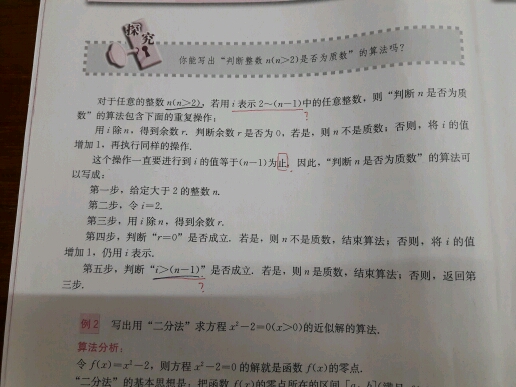 探究
你能写出“判断整数n(n>2)是否为质数”的算法吗?
对于任意的整数n(n>2),若用i表示2~(n-1)中的任意整数,则“判断n是否为质
数”的算法包含下面的重复操作:
用i除n,得到余数r.判断余数r是否为0,若是,则n不是质数;否则,将i的值
增加1,再执行同样的操作.
这个操作一直要进行到i的值等于(n-1)为止.因此,“判断n是否为质数”的算法可
以写成:
第一步,给定大于2的整数n.
第二步,令i=2.
第三步,用i除n,得到余数r.
第四步,判断“r=0”是否成立.若是,则n不是质数,结束算法;否则,将i的值
增加1,仍用i表示.
第五步,判断“i>(n-1)”是否成立.若是,则n是质数,结束算法;否则,返回第
三步.
例2 写出用“二分法”求方程x²-2=0(x>0)的近似解的算法.
算法分析:
令f(x)=x²-2,则方程x²-2=0的解就是函数f(x)的零点.
“二分法”的基本思想是:把函数f(x)的零点所在的区间[a,b](满足